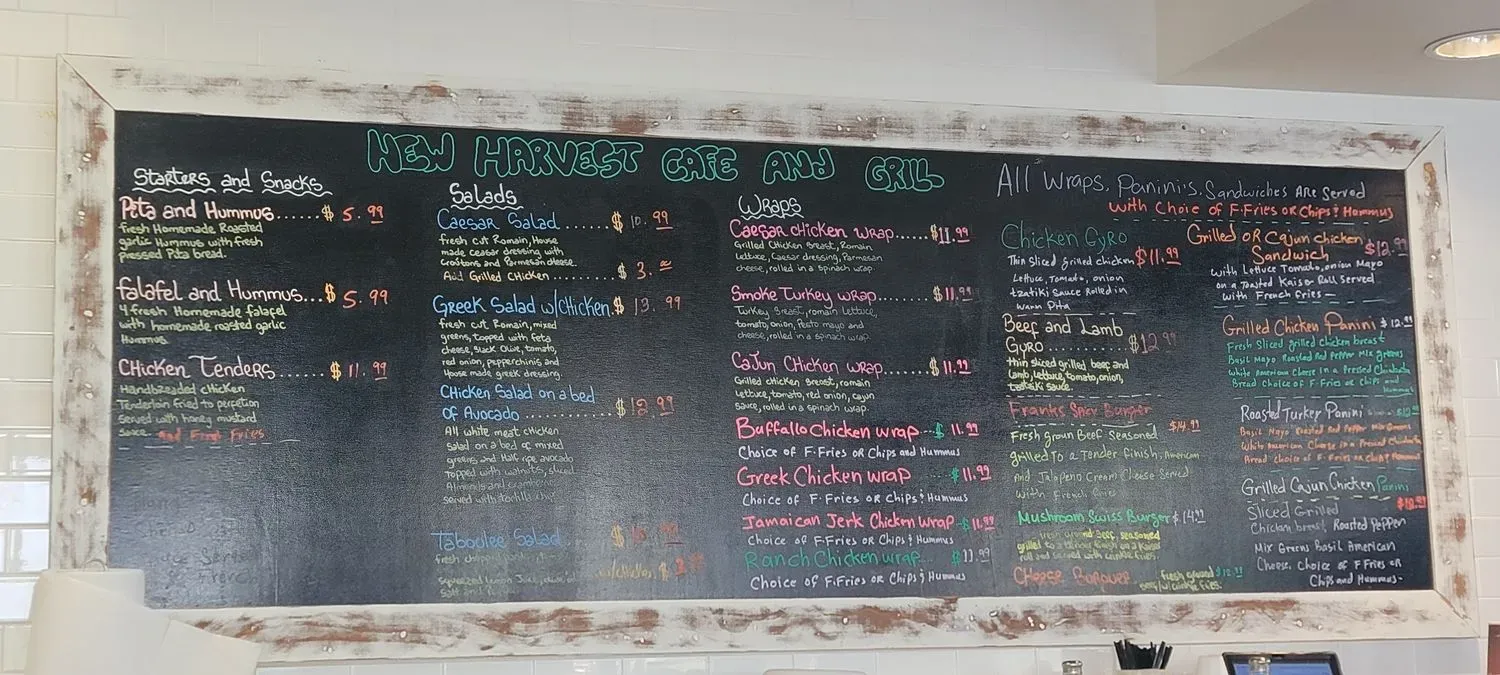 NEW HARVEST CAFE AND GRILL
Starters and Snacks
Pita and Hummus......$ 5.99
fresh Homemade Roasted
garlic Hummus with fresh
pressed Pita bread.
falafel and Hummus...$ 5.99
4 fresh Homemade falafel
with homemade roasted garlic
Hummus.
Chicken Tenders......$ 11.99
Handbreaded chicken
Tenderloin fried to perfetion
Served with honey mustard
sauce. and French Fries
Salads
Caesar Salad......$ 10.99
fresh cut Romain, House
made ceasar dressing with
croutons and Parmesan cheese.
Add Grilled Chicken..........$ 3.00
Greek Salad w/Chicken.$ 13.99
fresh cut Romain, mixed
greens, topped with feta
cheese, Black Olive, tomato,
red onion, pepperchinis and
House made greek dressing.
Chicken Salad on a bed
of Avocado..............$ 12.99
All white meat chicken
Salad on a bed of mixed
greens and Half ripe avocado
Topped with walnuts, sliced
Almonds and
served with tortilla
Taboolee Salad $
fresh
w/chicken $
Squeezed Lemon Juice, olive oil
Salt and
Wraps
Caesar chicken wrap.....$11.99
Grilled Chicken Breast, Romain
lettuce, Caesar dressing, Parmesan
cheese, rolled in a spinach wrap.
Smoke Turkey wrap.......$11.99
Turkey Breast, romain lettuce,
tomato, onion, Pesto mayo and
cheese, rolled in a spinach wrap.
Cajun Chicken wrap......$ 11.99
Grilled chicken Breast, romain
lettuce, tomato, red onion, cajun
sauce, rolled in a spinach wrap.
Buffallo Chicken wrap...$ 11.99
Choice of F.Fries or Chips and Hummus
Greek Chicken wrap $11.99
Choice of F.Fries or Chips & Hummus
Jamaican Jerk Chicken wrap-$ 11.99
Choice of F.Fries or Chips & Hummus
Ranch Chicken wrap.... $11.99
Choice of F.Fries or Chips & Hummus
All Wraps, Panini's, Sandwiches ARe Served
with Choie of F.Fries or Chips & Hummus
Chicken Gyro
Thin Sliced grilled chicken $11.99
Lettuce, Tomato, onion
tzatiki Sauce Rolled in
warm Pita
Beef and Lamb
Gyro...........$12.99
thin sliced grilled beef and
Lamb, lettuce, tomato, onion,
tzatsiki sauce.
Franks Spicy Burger
$14.99
Fresh groun Beef Seasoned
grilled To a Tender finish, American
And Jalapeno Cream Cheese Served
With French Fries
Mushroom Swiss Burger $ 14.99
fresh ground beef, seasoned
grilled to a finish on a Kaiser
roll and served with crinkle fries.
Cheese Burguer fresh ground $12.99
beef/w/crinkle fries.
Grilled OR Cajun Chicken
Sandwich $12.99
with Lettuce Tomato, onion Mayo
on a Toasted Kaiser Roll Served
with French fries
Grilled Chicken Panini $ 12.99
Fresh Sliced grilled chicken breast
Basil Mayo Roasted Red Pepper Mix greens
White American Cheese in a Pressed Chiabatta
Bread Choice of F.Fries or Chips and
Hummus
Roasted Turkey Panini
Basil Mayo Roasted Red Pepper Mix Greens
White American Cheese in a Pressed Chiabatta
Bread choice of F.Fries or chips Hummus
Grilled Cajun Chicken Panini
Sliced Grilled
Chicken breast, Roasted Pepper
Mix Greens Basil American
Cheese, Choice of F.Fries or
Chips and Hummus-